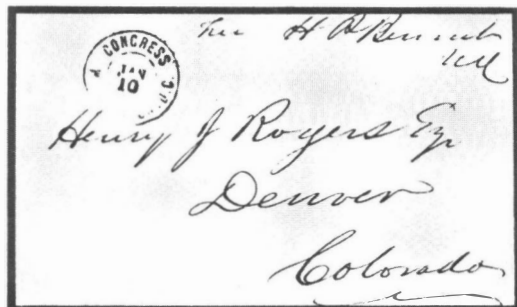 Free H P Bennet
CONGRESS
JAN
10
Henry J Rogers Esq
Denver
Colorado